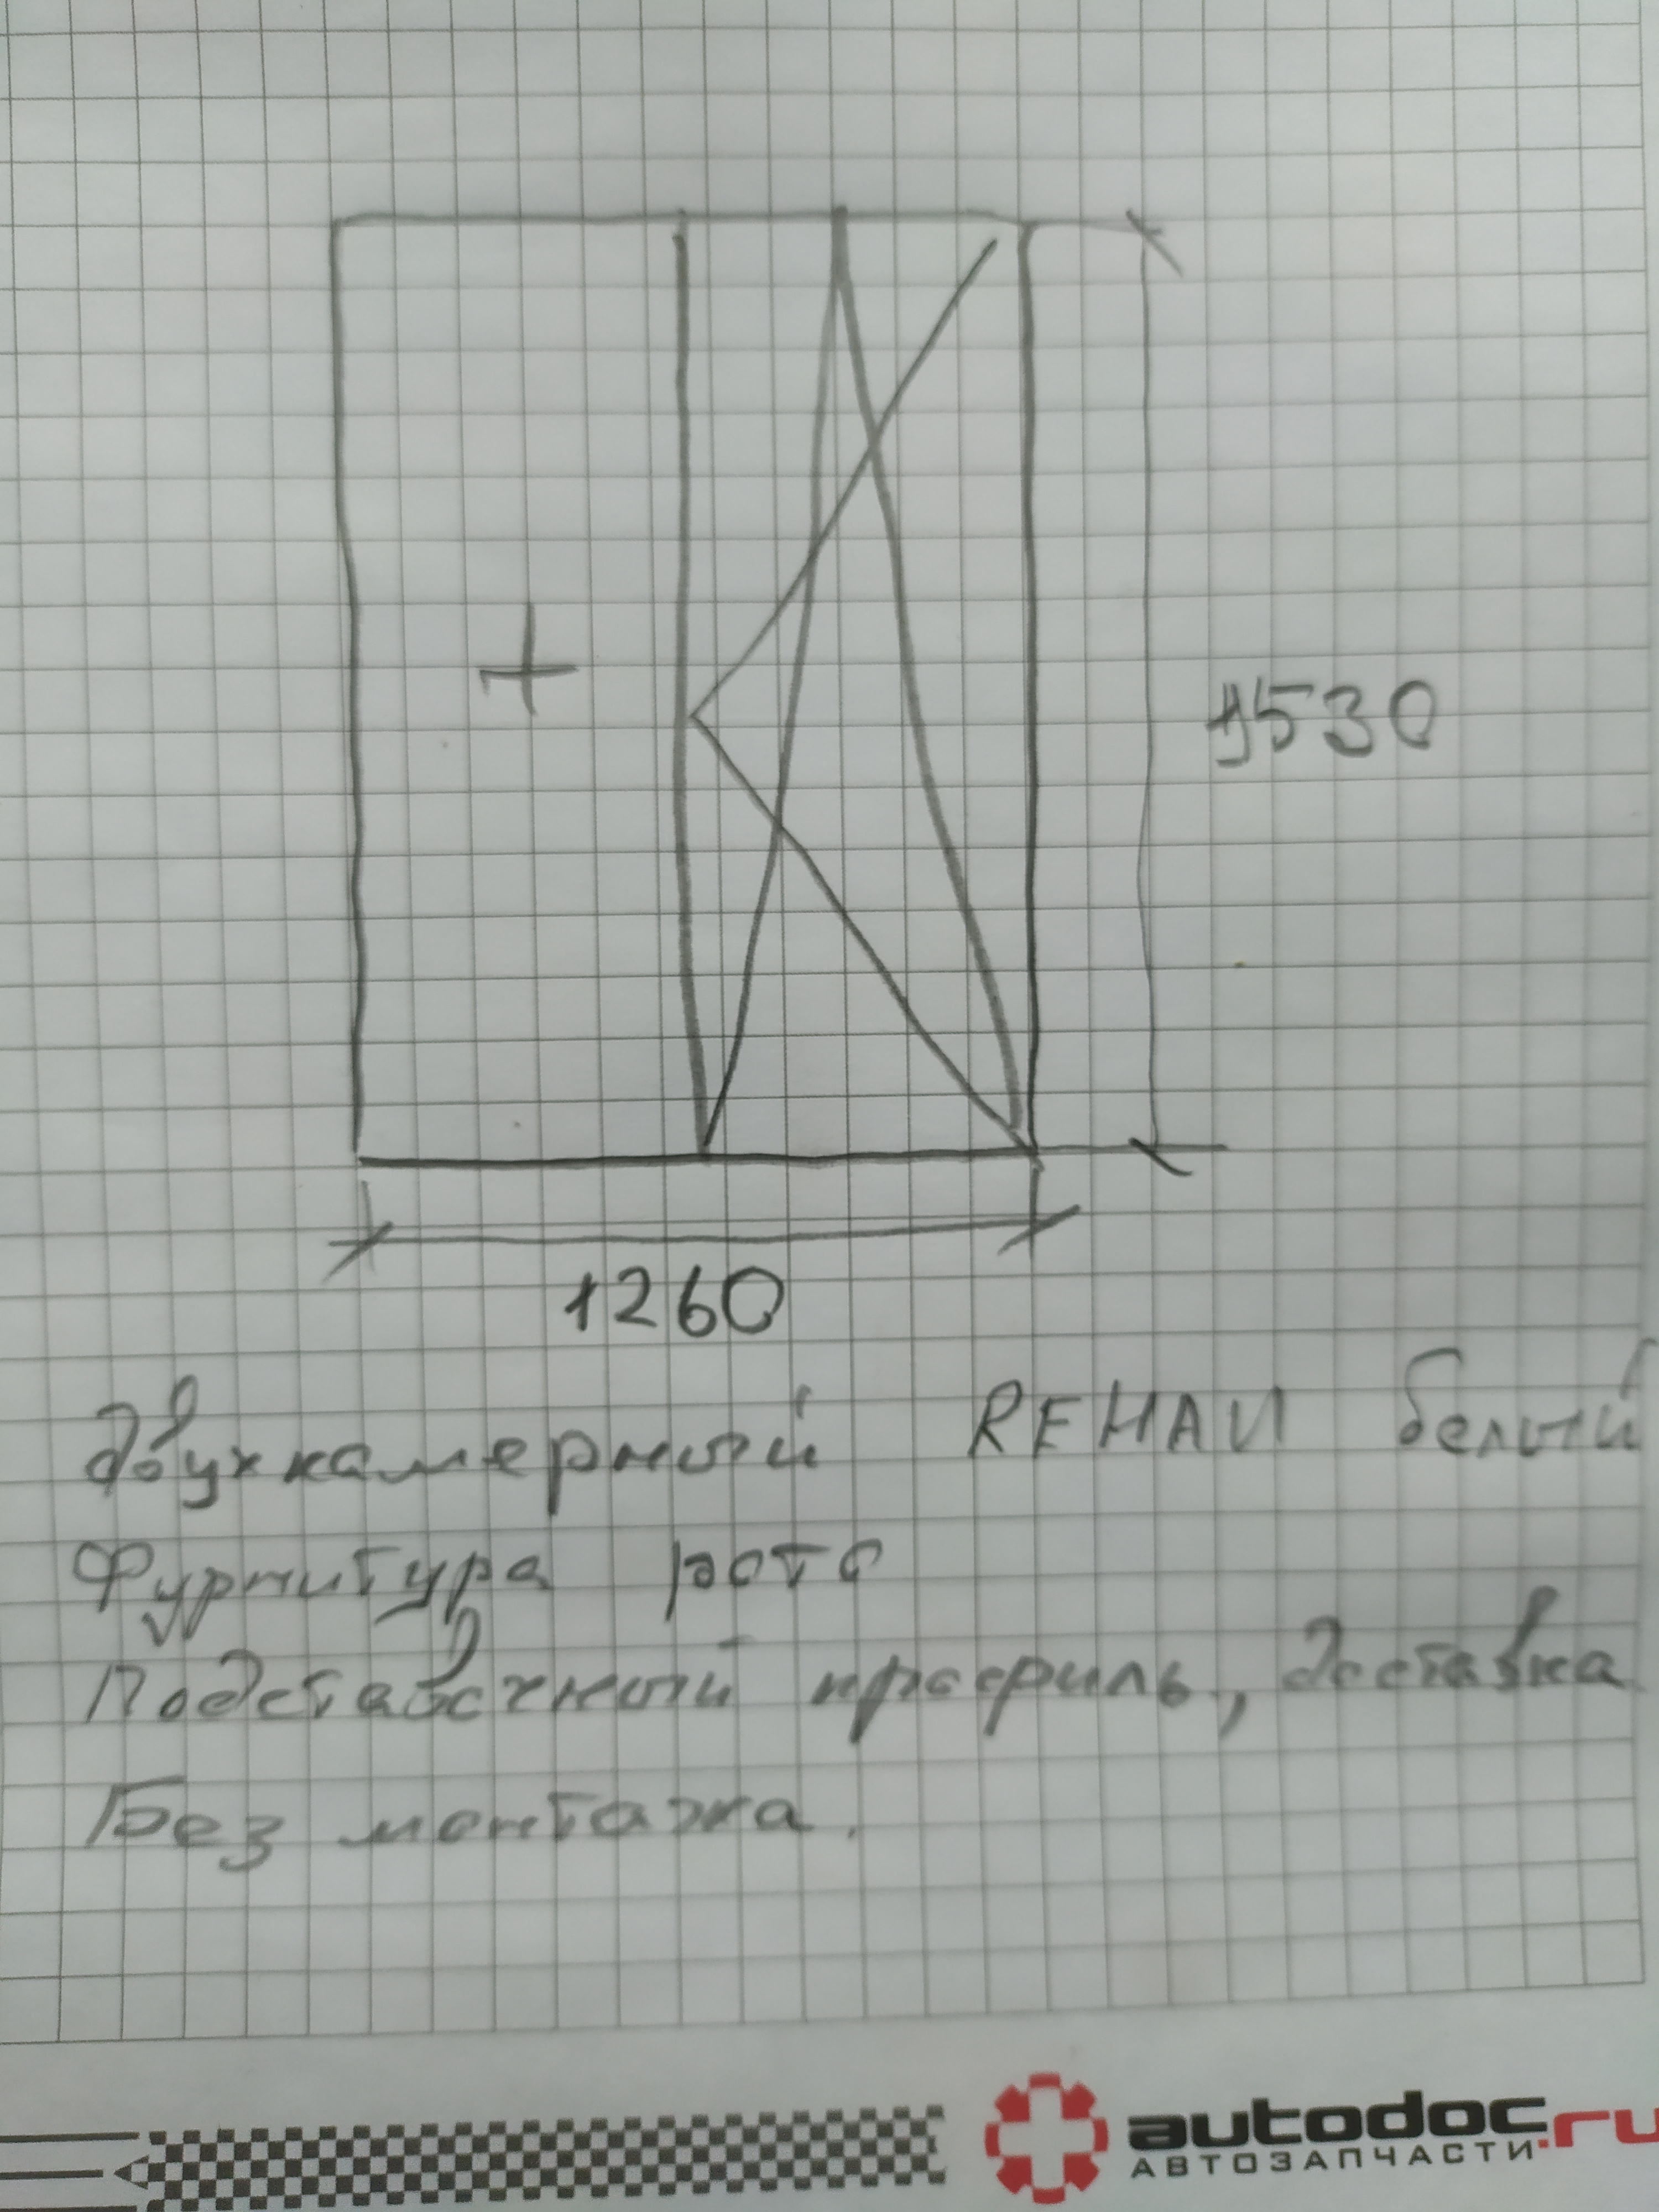 1530
1260
Двухкамерный REHAU белый
Фурнитура рото
Подставочный профиль, доставка
Без монтажа.
autodoc.ru
АВТОЗАПЧАСТИ